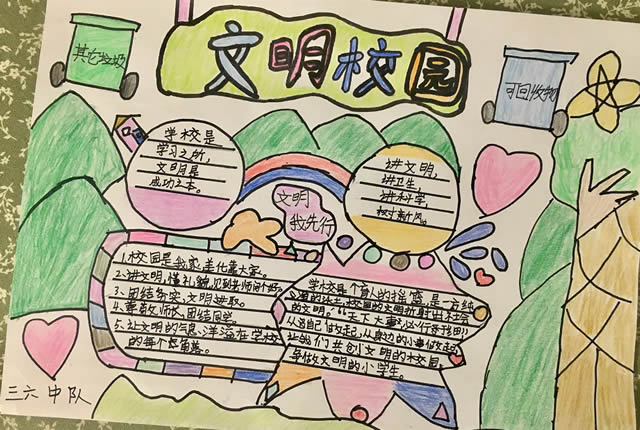 文明校园
其它垃圾
可回收物
学校是
学习之所,
文明是
成功之本。
讲文明,
讲卫生,
讲科学,
树新风。
文明
我先行
1.校园是我家,美化靠大家。
2.讲文明,懂礼貌,见到老师问个好。
3.团结务实,文明进取。
4.尊敬师长,团结同学
5.让文明的气息洋溢在学校
的每个角落。
学校是个育人的摇篮,是一方纯
校园的文明折射出社会
的文明。“天下大事,必作于细”
从自己做起,从身边的小事做起
让我们共创文明的校园,
争做文明的小学生。
三六中队